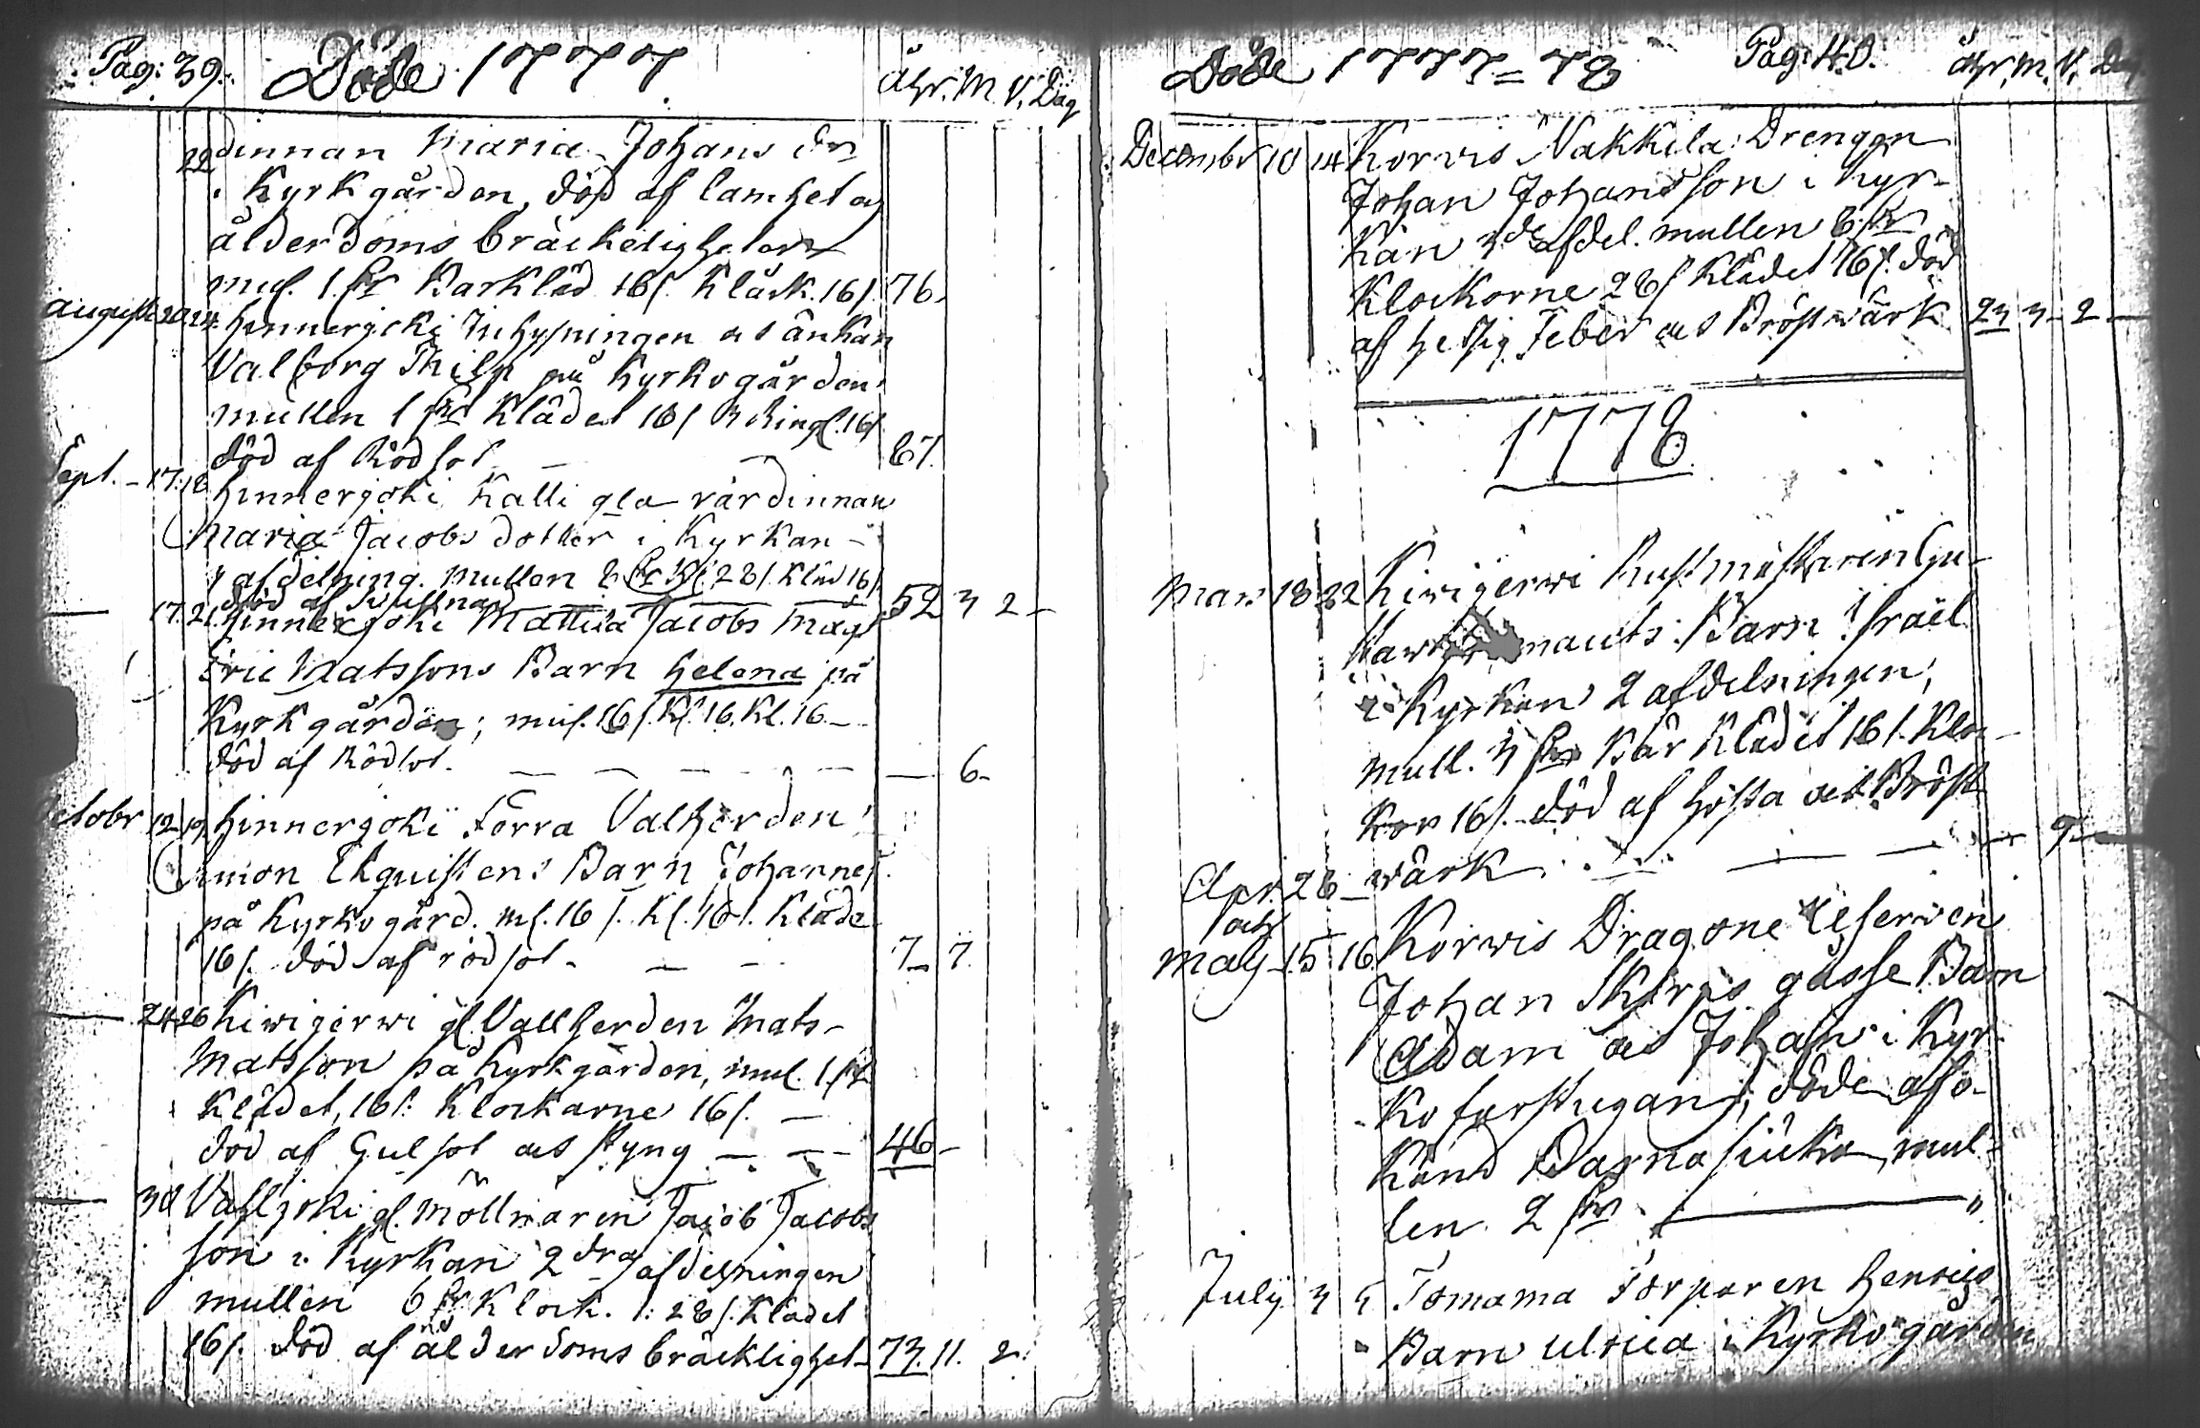 Pag: 39. Döde 1777 Åhr. M. V. Dag
22 dinnan Maria Johans dr
i Kyrkgården, död af lamhet och
ålderdoms bräckeligheter
mul. 1 Barkläd 16/. Klåck. 16/. 76.
August 20 24 Hinnerjoki Inhysningen änkan
Valborg Thils på Kyrkogården
mullen 1 Klädet 16/ Ringf. 16/
död af Rödsot 81.
Sept. 17. 18 Hinnerjoki Kalli gla värdinnan
Maria Jacobs dotter i Kyrkan
afdelning. Mullen 8 28/. Kläd 16/
död af 52 3 2
17. 21. Hinnerjoki Mattila Jacobs Mågs
Eric Matssons Barn Helena på
Kyrkgården; mul. 16/. Kl. 16. Kl. 16
död af Rödsot. 6
octobr 12 19 Hinnerjoki Förra Valherden
Simon Ekquistens Barn Johannes
på Kyrkogård. ml. 16/. Kl. 16/. Kläde
16/. död af rödsot 7 7
24 26 Kiwijerwi gl. Vallherden Mats
Matsson på Kyrkgården, mul. 1
Klädet, 16/: Klockarne 16/.
död af Gulsot styng 46
30 Vasljoki gl. Möllnaren Jacob Jacobs
son i Kyrkan 2dra afdelningen
mullen 6 Klock. 1: 28/. Klädet
16/. död af ålderdoms bräcklighet 73. 11. 2
Döde 1777=78 Pag: 40. Åhr. M. V. Dag
December 10 14 Korvis Nakkila Drengen
Johan Johansson i Kyr-
kan 3de afdel. mullen 8
Klockorne 28/ Klädet 16/. död
af hetsig Feber Bröstwärk 23 3 2
1778
Mars 18 22 Kiwijerwi Rustmästaren Gu-
Barn Israel
i Kyrkan 2 afdelningen;
mull. 4 Bår Klädet 16/. Kloc-
kor 16/. död af hosta Bröst
wärk 9
Apr. 28
och
May 15 16 Korwis Dragone Reserven
Johan gåsse Barn
Adam Johan i Kyr-
ko farstugan; döde af o-
känd Barnasjuka, mul-
len 2 "
July 3 5 Tomama Torparen Henrics
Barn Ulrica i Kyrkogården